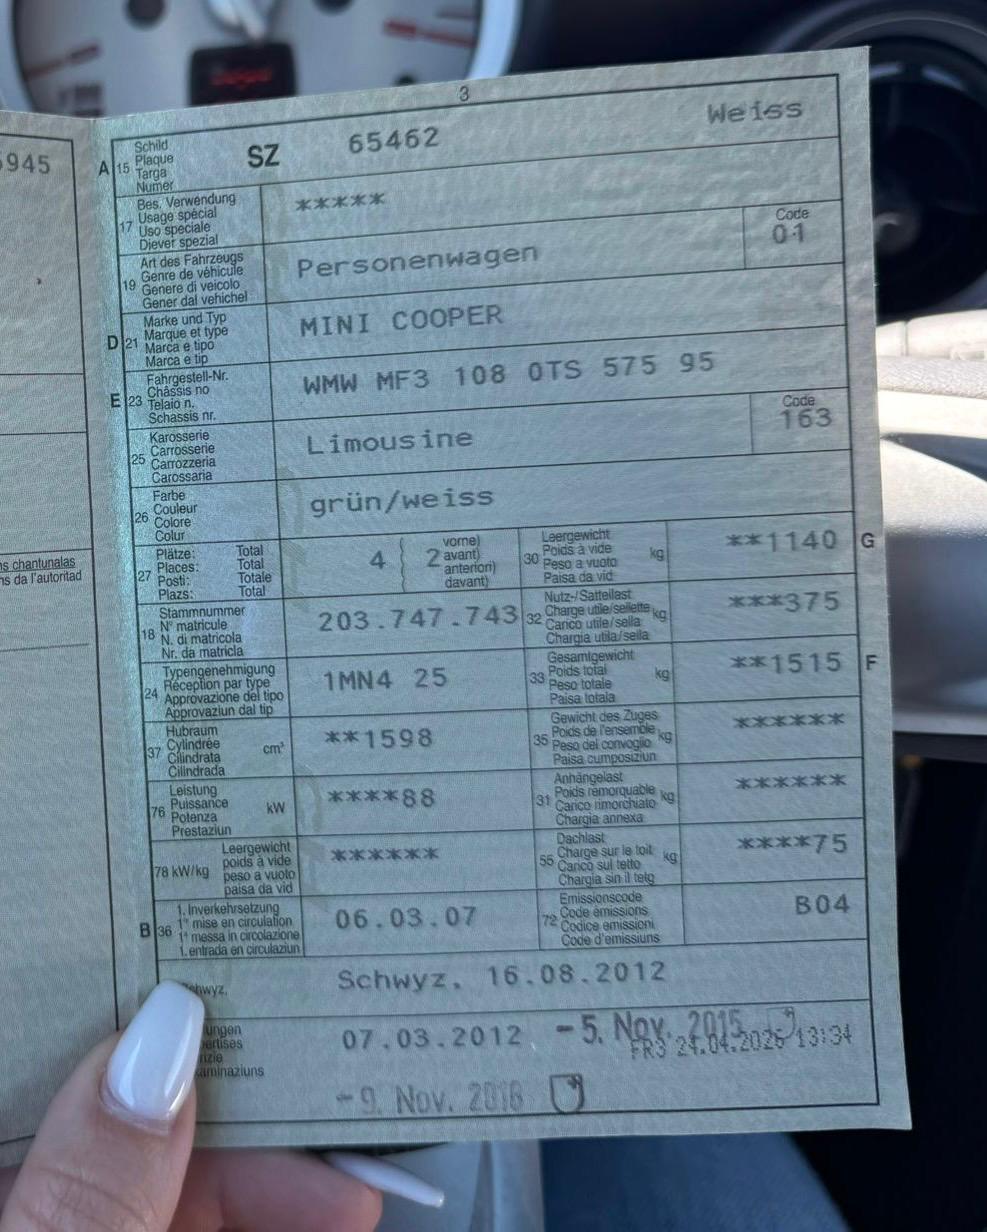 5945
ns chantunalas
ns da l'autoritad
3
A 15 Schild
Plaque
Targa
Numer
SZ 65462 Weiss
17 Bes. Verwendung
Usage spécial
Uso speciale
Diever spezial
*****
19 Art des Fahrzeugs
Genre de véhicule
Genere di veicolo
Gener dal vehichel
Personenwagen
Code
01
D 21 Marke und Typ
Marque et type
Marca e tipo
Marca e tip
MINI COOPER
E 23 Fahrgestell-Nr.
Châssis no
Telaio n.
Schassis nr.
WMW MF3 108 0TS 575 95
25 Karosserie
Carrosserie
Carrozzeria
Carossaria
Limousine
Code
163
26 Farbe
Couleur
Colore
Colur
grün/weiss
27 Plätze: Total
Places: Total
Posti: Totale
Plazs: Total
4 2 vorne)
avant)
anteriori)
davant)
30 Leergewicht
Poids à vide
Peso a vuoto
Paisa da vid
kg
**1140 G
18 Stammnummer
N° matricule
N. di matricola
Nr. da matricla
203.747.743
32 Nutz-/Sattellast
Charge utile/sellette
Carico utile/sella
Chargia utila/sella
kg
***375
24 Typengenehmigung
Réception par type
Approvazione del tipo
Approvaziun dal tip
1MN4 25
33 Gesamtgewicht
Poids total
Peso totale
Paisa totala
kg
**1515 F
37 Hubraum
Cylindrée
Cilindrata
Cilindrada
cm³
**1598
35 Gewicht des Zuges
Poids de l'ensemble
Peso del convoglio
Paisa cumposiziun
kg
******
76 Leistung
Puissance
Potenza
Prestaziun
kW
****88
31 Anhängelast
Poids remorquable
Carico rimorchiato
Chargia annexa
kg
******
78 kW/kg Leergewicht
poids à vide
peso a vuoto
paisa da vid
******
55 Dachlast
Charge sur le toit
Carico sul tetto
Chargia sin il tetg
kg
****75
B 36 1. Inverkehrsetzung
1re mise en circulation
1a messa in circolazione
1. entrada en circulaziun
06.03.07
72 Emissionscode
Code émissions
Codice emissioni
Code d'emissiuns
B04
chwyz,
Schwyz, 16.08.2012
ungen
pertises
nzie
aminaziuns
07.03.2012 -5. Nov. 2015
FR3 24.04.2026 13:34
-9. Nov. 2018